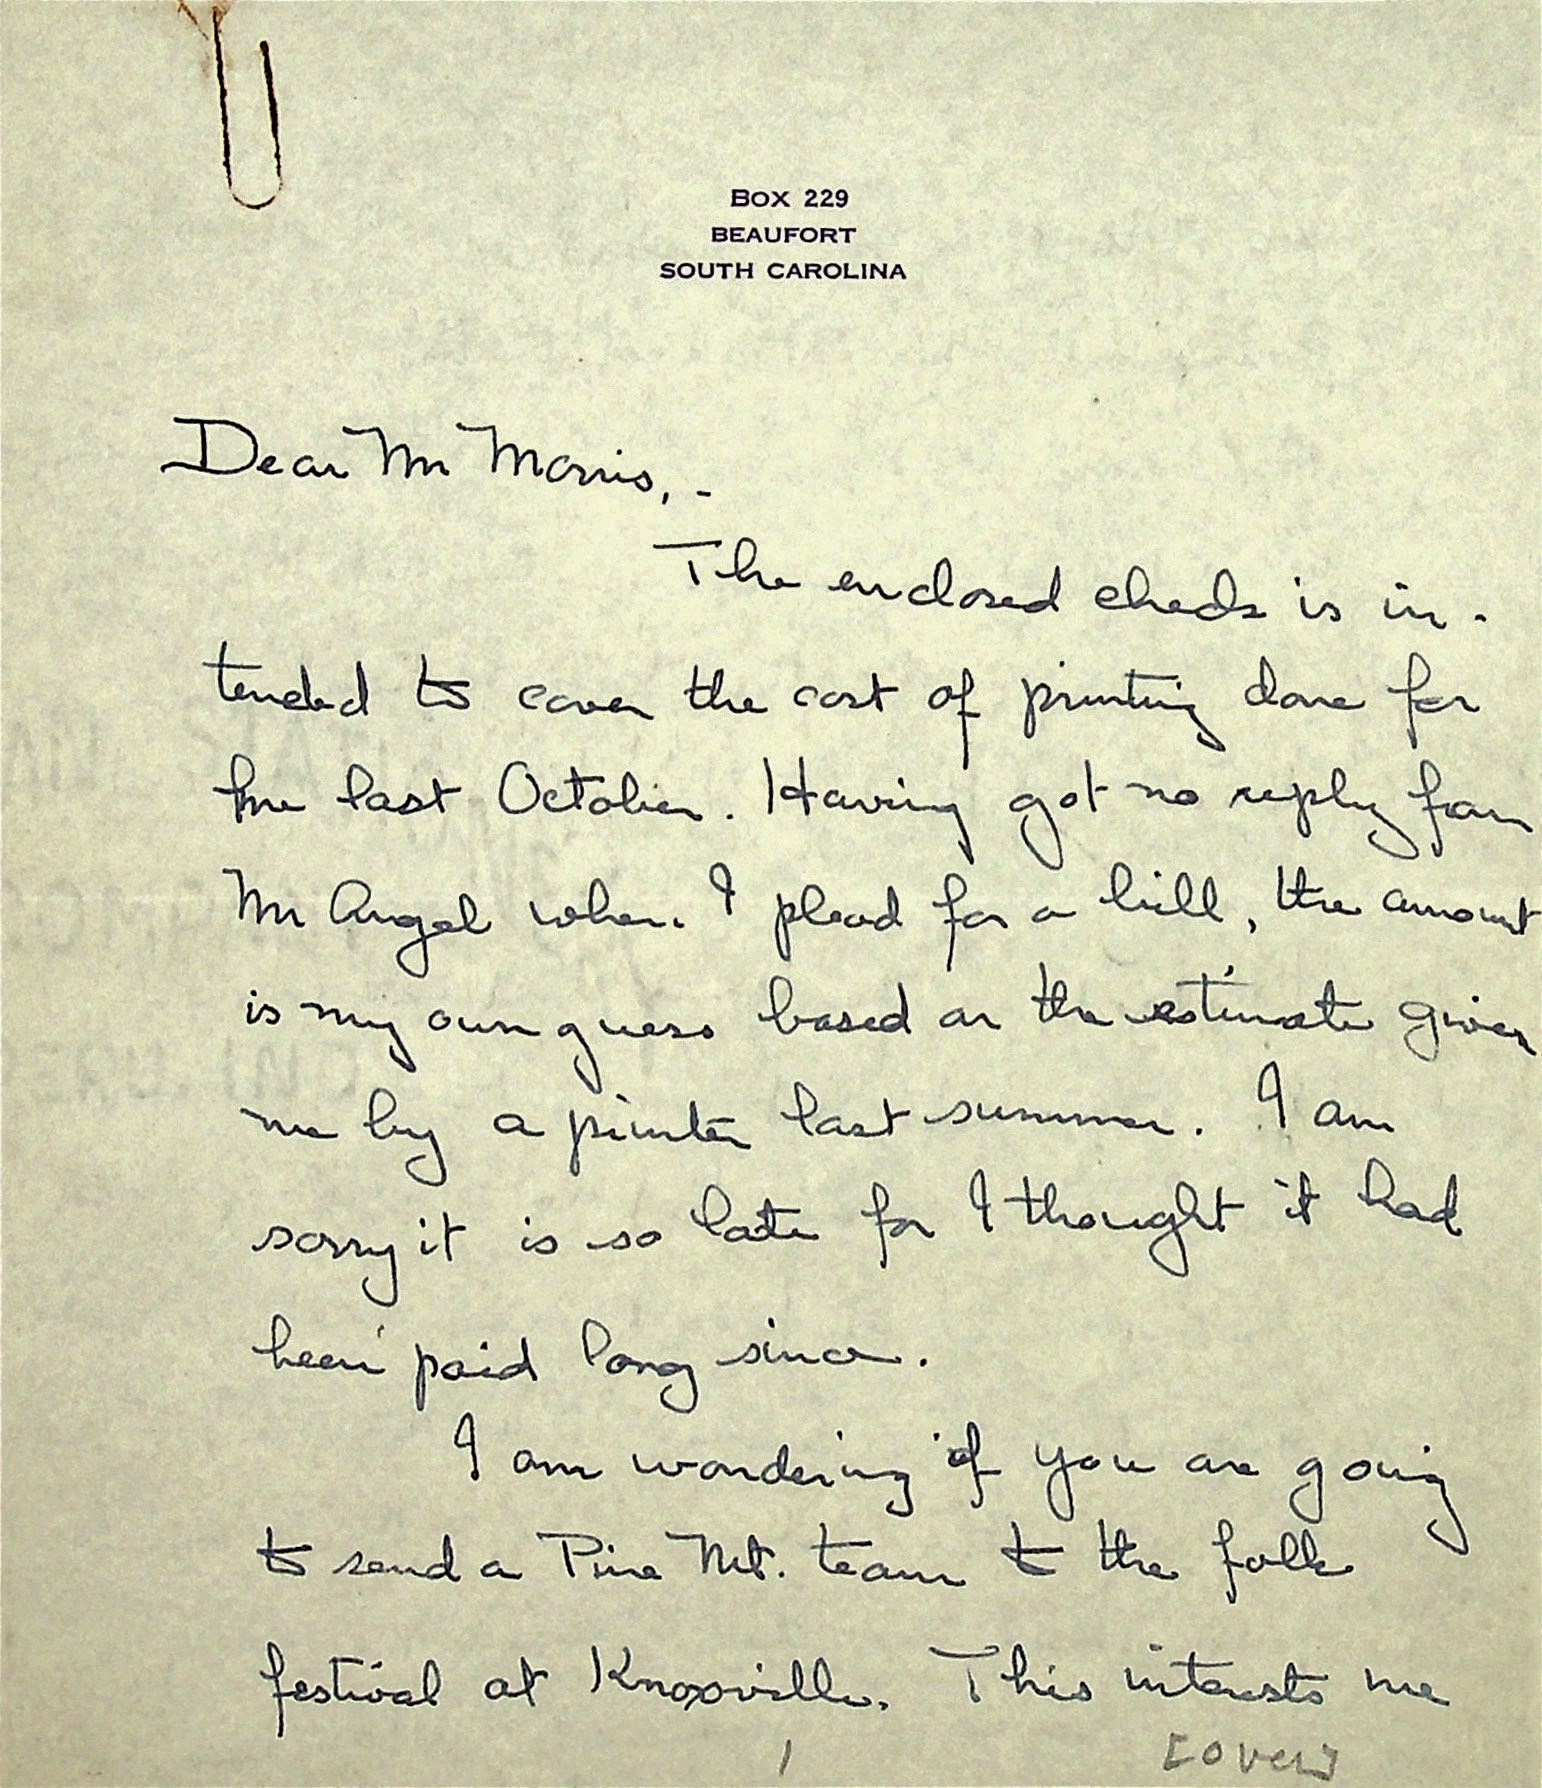 BOX 229
BEAUFORT
SOUTH CAROLINA
Dear Mr Morris, -
The enclosed check is in-
tended to cover the cost of printing done for
me last October. Having got no reply from
Mr Angel when I plead for a bill, the amount
is my own guess based on the estimate given
me by a printer last summer. I am
sorry it is so late for I thought it had
been paid long since.
I am wondering if you are going
to send a Pine Mt. team to the folk
festival at Knoxville. This interests me
1 [over]